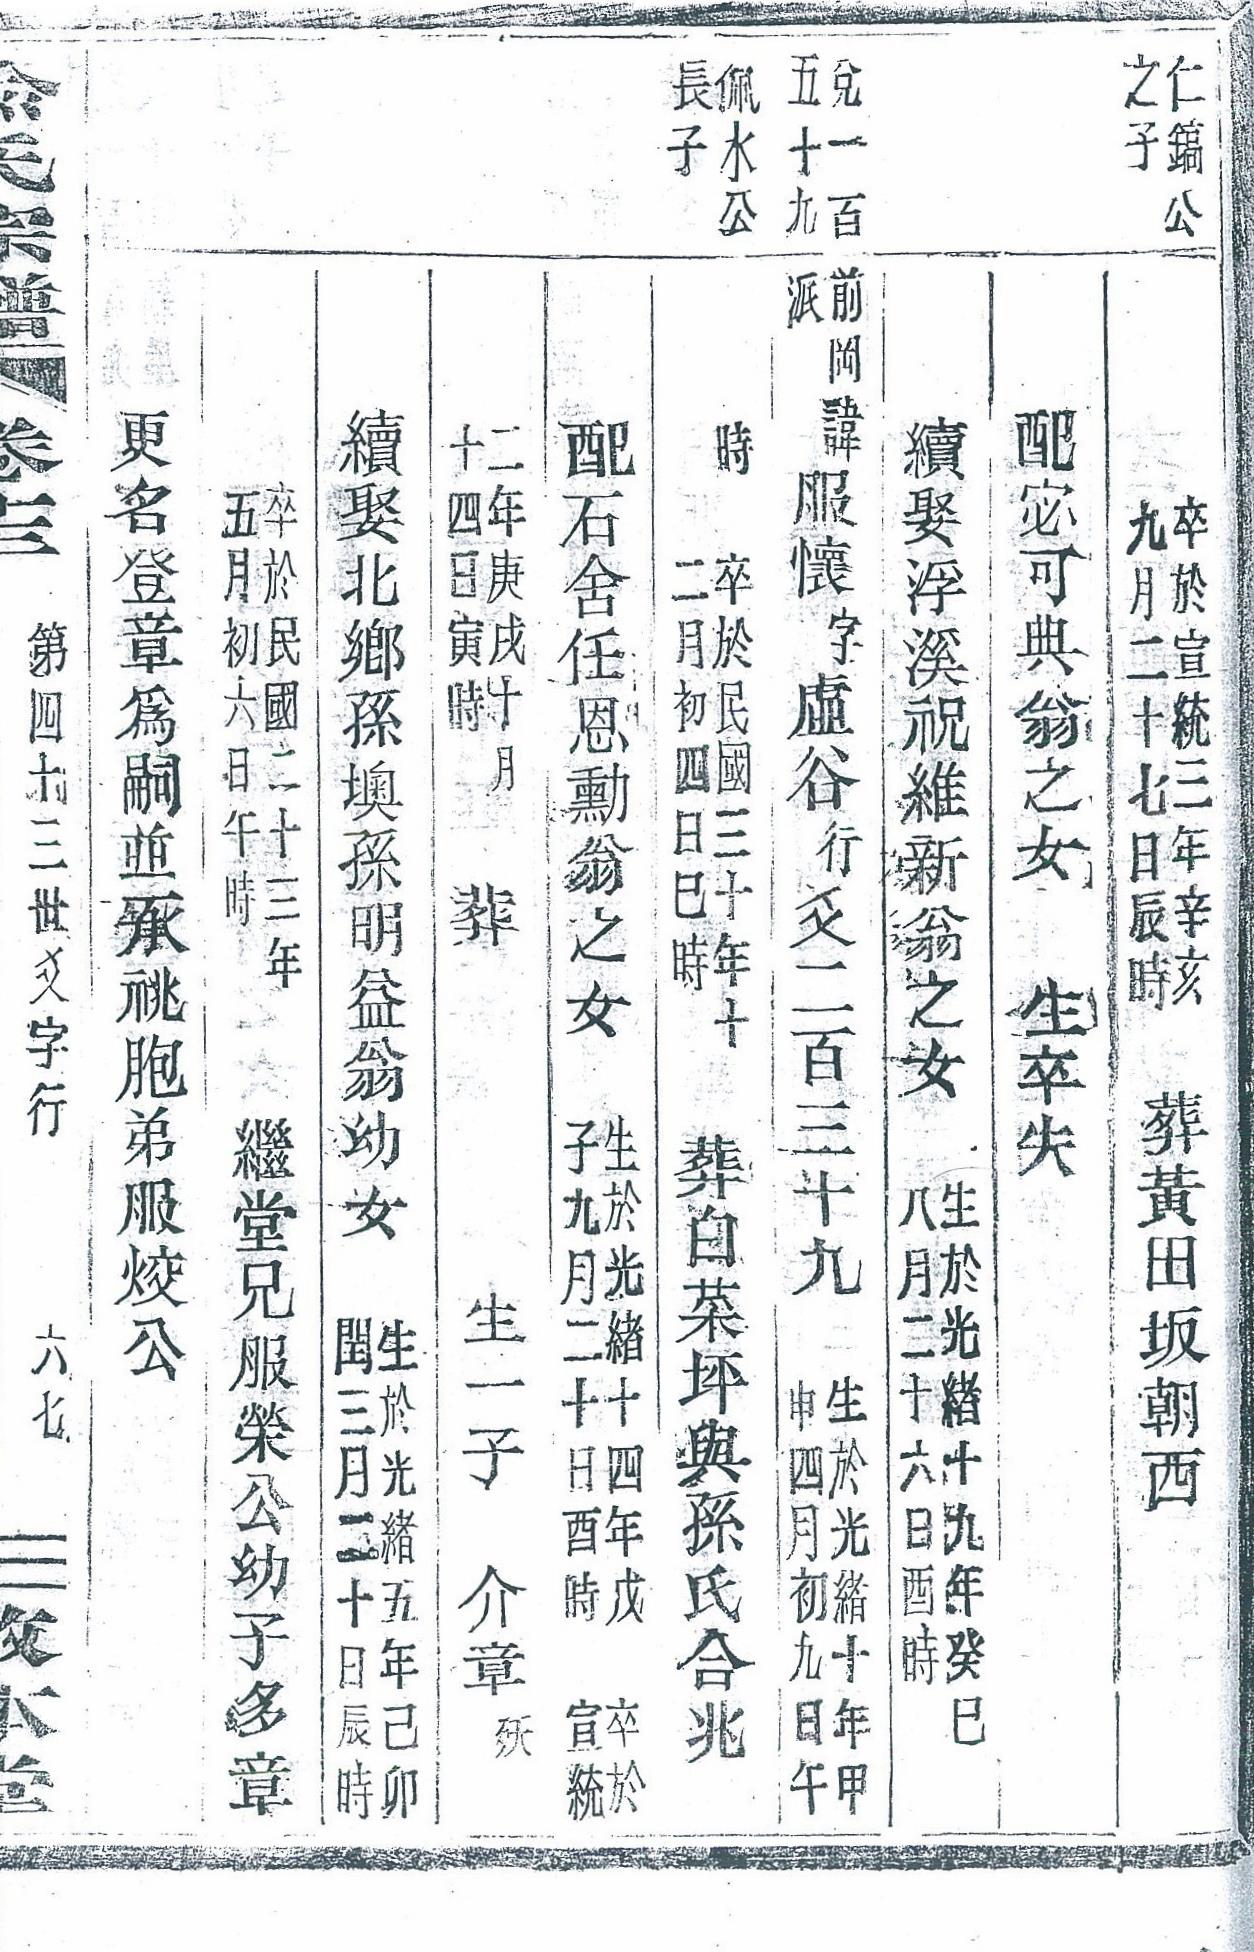 仁鎬公
之子
卒於宣統三年辛亥
九月二十七日辰時
葬黃田坂朝西
配宓可典翁之女 生卒失
續娶浮溪祝維新翁之女
生於光緒十九年癸巳
八月二十六日酉時
兌一百
五十九
前岡
派
諱服懷字虛谷行爻二百三十九
生於光緒十年甲
申四月初九日午
佩水公
長子
時
卒於民國三十年十
二月初四日巳時
葬白菜坪與孫氏合兆
配石舍任恩勳翁之女
生於光緒十四年戊
子九月二十日酉時
卒於
宣統
二年庚戌十月
十四日寅時
葬 生一子 介章 殀
續娶北鄉孫墺孫明益翁幼女
生於光緒五年己卯
閏三月二十日辰時
卒於民國二十三年
五月初六日午時
繼堂兄服榮公幼子多章
更名登章爲嗣並承祧胞弟服烄公
俞氏宗譜 卷十三 第四十三世爻字行 六七 敦本堂